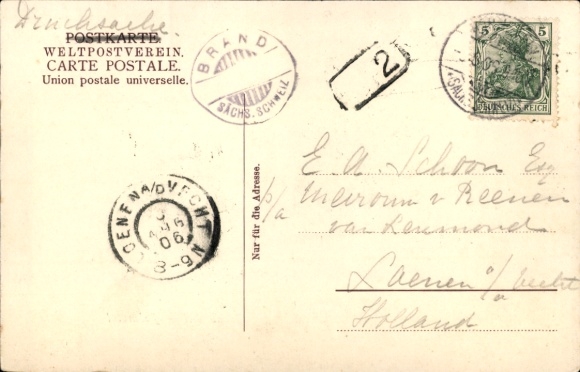 Drucksache
POSTKARTE
WELTPOSTVEREIN.
CARTE POSTALE.
Union postale universelle.
BRAND
SÄCHS. SCHWEIZ
2
5 5
DEUTSCHES REICH
Nur für die Adresse.
LOENEN A/D VECHT
06
8-9 N
E. A. Schoon Esq
p/a
v Reenen
van Leumond
Loenen a/ Vecht
Holland